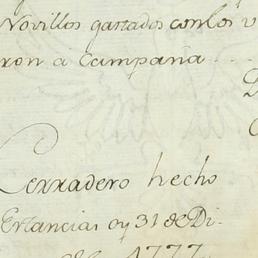 Novillos gastados con los v
ron a Campaña ....
Cerradero hecho
Estancias oy 31 de Di-
de 1777